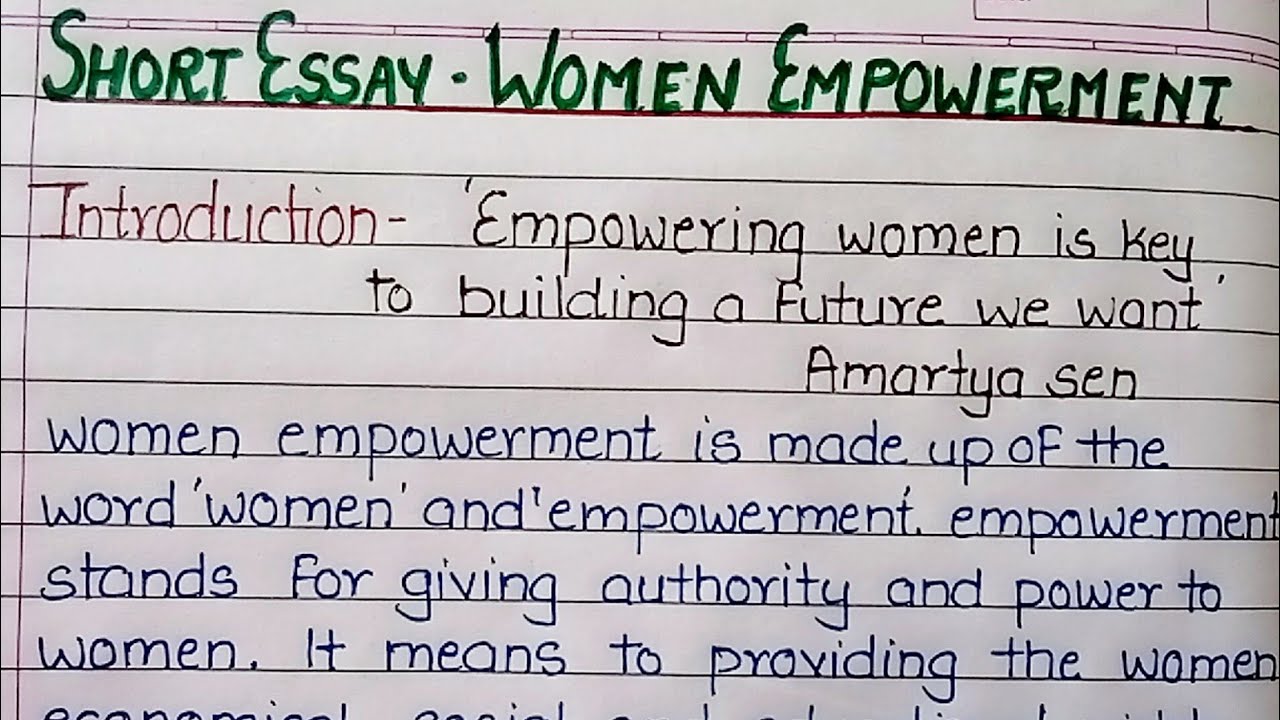 SHORT ESSAY. WOMEN EMPOWERMENT
Introduction- 'Empowering women is key
to building a Future we want'
Amartya sen
women empowerment is made up of the
word 'women' and 'empowerment'. empowerment
stands for giving authority and power to
women. It means to providing the women